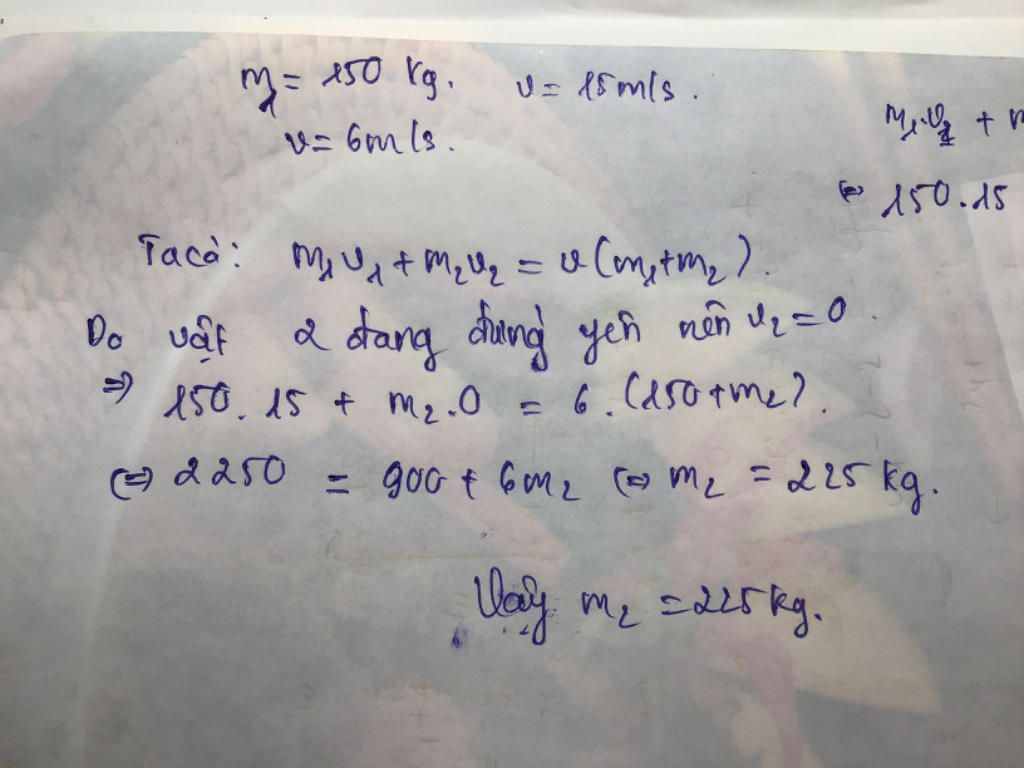 m₁ = 150 kg. v = 15m/s.
v = 6m/s.
m₁.v₁ +
⇔ 150.15
Ta có: m₁v₁ + m₂v₂ = v(m₁+m₂).
Do vật 2 đang đứng yên nên v₂=0.
⇒ 150.15 + m₂.0 = 6.(150+m₂).
⇔ 2250 = 900 + 6m₂ ⇔ m₂ = 225 kg.
Vậy m₂ = 225 kg.